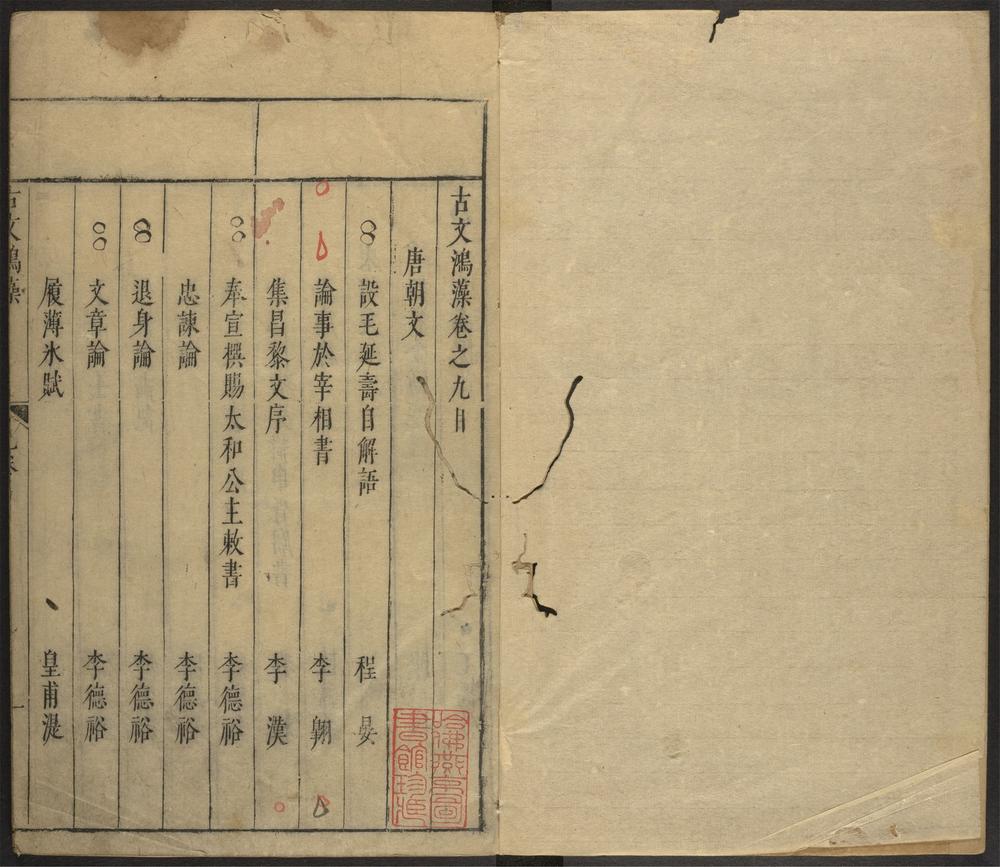 古文鴻藻卷之九目
唐朝文
設毛延壽自解語 程晏
論事於宰相書 李翱
集昌黎文序 李漢
奉宣撰賜太和公主敕書 李德裕
忠諫論 李德裕
退身論 李德裕
文章論 李德裕
履薄氷賦 皇甫湜
古文鴻藻
哈佛燕京圖書館珍藏